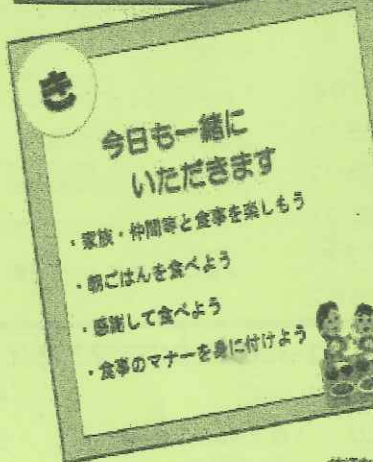 き
今日も一緒に
いただきます
・家族・仲間等と食事を楽しもう
・朝ごはんを食べよう
・感謝して食べよう
・食事のマナーを身に付けよう